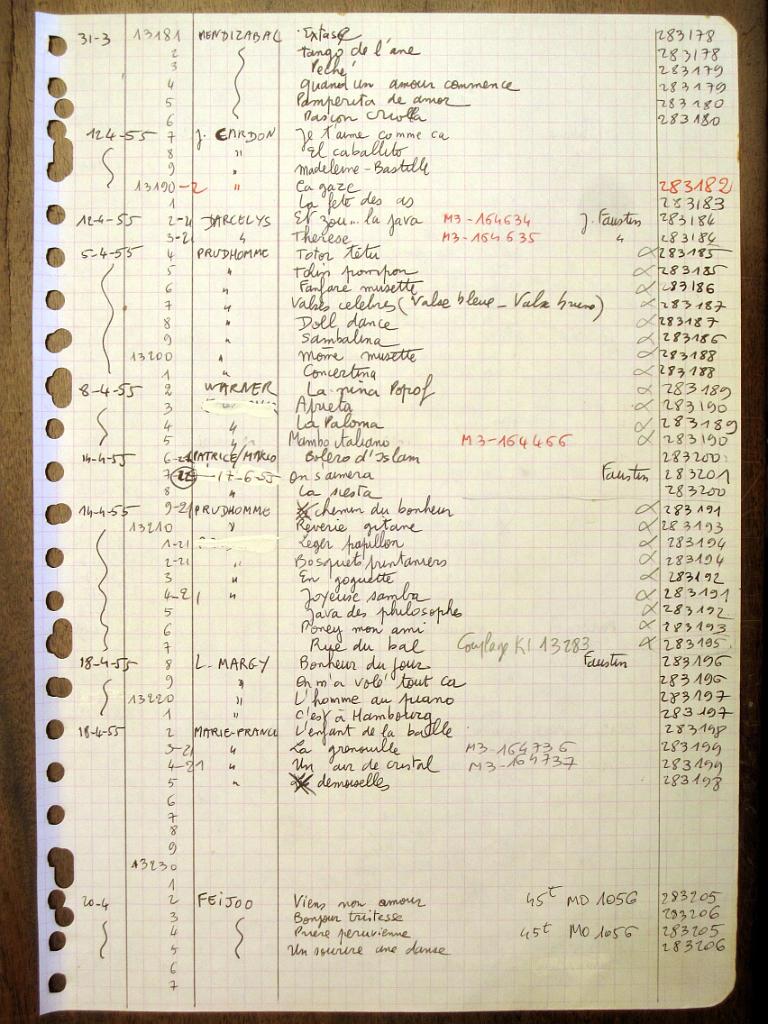 31-3 13181 MENDIZABAL Extase 283178
2 Tango de l'ane 283178
3 Peché 283179
4 quand un amour commence 283179
5 Pamperita de amor 283180
6 Pasion criolla 283180
12-4-55 7 J. CARDON Je t'aime comme ca
8 " El caballito
9 " Madeleine-Bastille
13190-2 " Ca gaze 283182
1 La fete des as 283183
12-4-55 2-21 DARCELYS Et zou... la java M3-164634 J. Faustin 283184
3-21 " Therese M3-164635 " 283184
5-4-55 4 PRUDHOMME Totor tétu α 283185
5 " pompon α 283185
6 " Fanfare musette α 283186
7 " Valses celebres (Valse bleue - Valse brune) α 283187
8 " Doll dance α 283187
9 " Sambalina α 283186
13200 " Môme musette α 283188
1 " Concertina α 283188
8-4-55 2 WARNER La nina Popof α 283189
3 Aprieta α 283190
4 " La Paloma α 283189
5 " Mambo italiano M3-164466 α 283190
14-4-55 6-21 PATRICE/MARIO Bolero d'Islam 283200
7 (22) - 17-6-55 On s'aimera Faustin 283201
8 " La siesta 283200
14-4-55 9-21 PRUDHOMME chemin du bonheur α 283191
13210 " Reverie gitane α 283193
1-21 Leger papillon α 283194
2-21 " Bosquets printaniers α 283194
3 " En goguette α 283192
4-21 " Joyeuse samba α 283191
5 Java des philosophes α 283192
6 Poney mon ami α 283193
7 Rue du bal Couplage KI 13283 α 283195
18-4-55 8 L. MARGY Bonheur du jour Faustin 283196
9 " On m'a volé tout ca 283196
13220 " L'homme au piano 283197
1 " C'est à Hambourg 283197
18-4-55 2 MARIE-FRANCE L'enfant de la balle 283198
3-21 " La grenouille M3-164736 283199
4-21 " Un air de cristal M3-164737 283199
5 " demoiselles 283198
6
7
8
9
13230
1
20-4 2 FEIJOO Viens mon amour 45t MO 1056 283205
3 Bonjour tristesse 283206
4 Priere peruvienne 45t MO 1056 283205
5 Un sourire une danse 283206
6
7